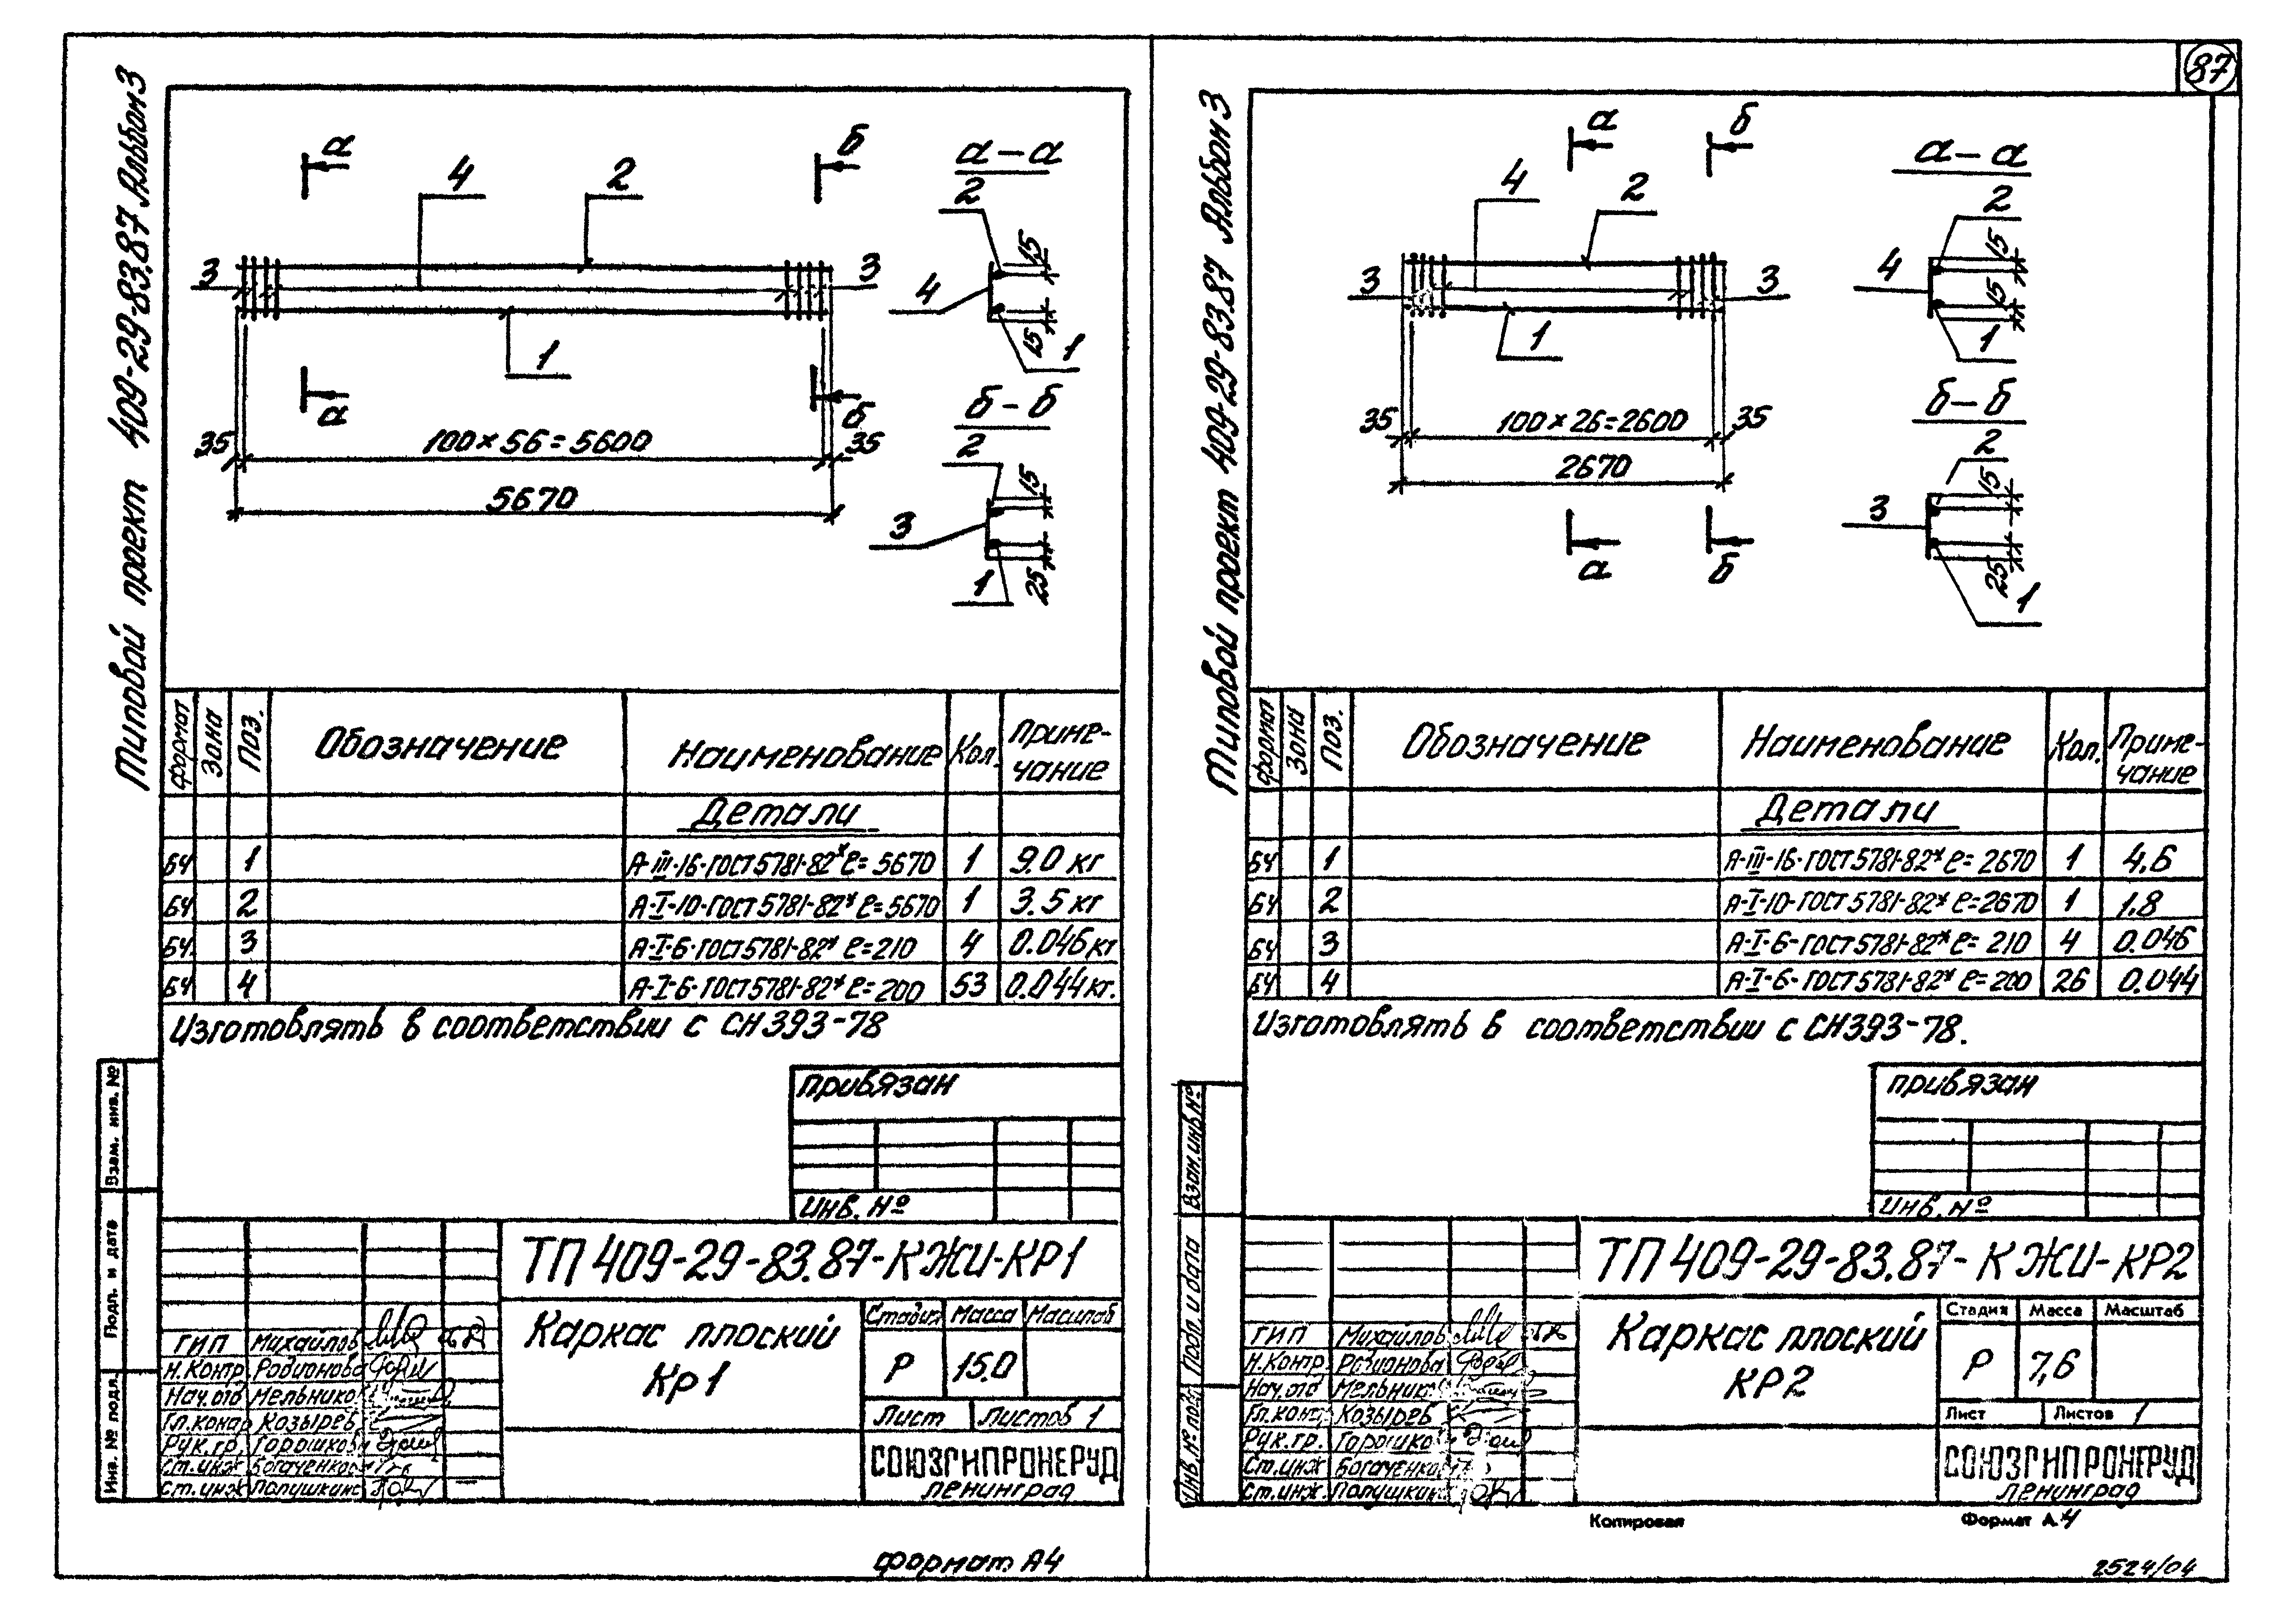 87
Типовой проект 409-29-83.87 Альбом 3
а
б
4
2
3
3
1
а
б
35
100×56=5600
35
5670
а-а
2
15
4
15
1
б-б
2
15
3
25
1
Формат
Зона
Поз.
Обозначение
Наименование
Кол.
Приме-
чание
Детали
БЧ 1 А-III-16-ГОСТ5781-82* ℓ=5670 1 9.0 кг
БЧ 2 А-I-10-ГОСТ5781-82* ℓ=5670 1 3.5 кг
БЧ 3 А-I-6-ГОСТ5781-82* ℓ=210 4 0.046 кг
БЧ 4 А-I-6-ГОСТ5781-82* ℓ=200 53 0.044 кг.
Изготовлять в соответствии с СН393-78
Привязан
Инв. №
Взам. инв. №
Подп. и дата
Инв. № подл.
ТП 409-29-83.87-КЖИ-КР1
Каркас плоский
Кр1
Стадия Масса Масштаб
Р 15.0
Лист Листов 1
СОЮЗГИПРОНЕРУД
Ленинград
ГИП Михайлов
Н.Контр. Родионова
Нач.отд Мельников
Гл.констр Козырев
Рук.гр. Горошков
Ст.инж Богаченков
Ст.инж Полушкина
Формат А4
Типовой проект 409-29-83.87 Альбом 3
а
б
4
2
3
3
1
35
100×26=2600
35
2670
а
б
а-а
2
15
4
15
1
б-б
2
15
3
25
1
Формат
Зона
Поз.
Обозначение
Наименование
Кол.
Приме-
чание
Детали
БЧ 1 А-III-16-ГОСТ5781-82* ℓ=2670 1 4,6
БЧ 2 А-I-10-ГОСТ5781-82* ℓ=2670 1 1,8
БЧ 3 А-I-6-ГОСТ5781-82* ℓ=210 4 0.046
БЧ 4 А-I-6-ГОСТ5781-82* ℓ=200 26 0.044
Изготовлять в соответствии с СН393-78.
Привязан
Инв. №
Взам. инв. №
Подп. и дата
Инв. № подл.
ТП 409-29-83.87-КЖИ-КР2
Каркас плоский
КР2
Стадия Масса Масштаб
Р 7,6
Лист Листов 1
СОЮЗГИПРОНЕРУД
Ленинград
ГИП Михайлов
Н.Контр. Родионова
Нач.отд Мельников
Гл.конст Козырев
Рук.гр. Горошков
Ст.инж Богаченков
Ст.инж Полушкина
Копировал
Формат А.4
2524/04